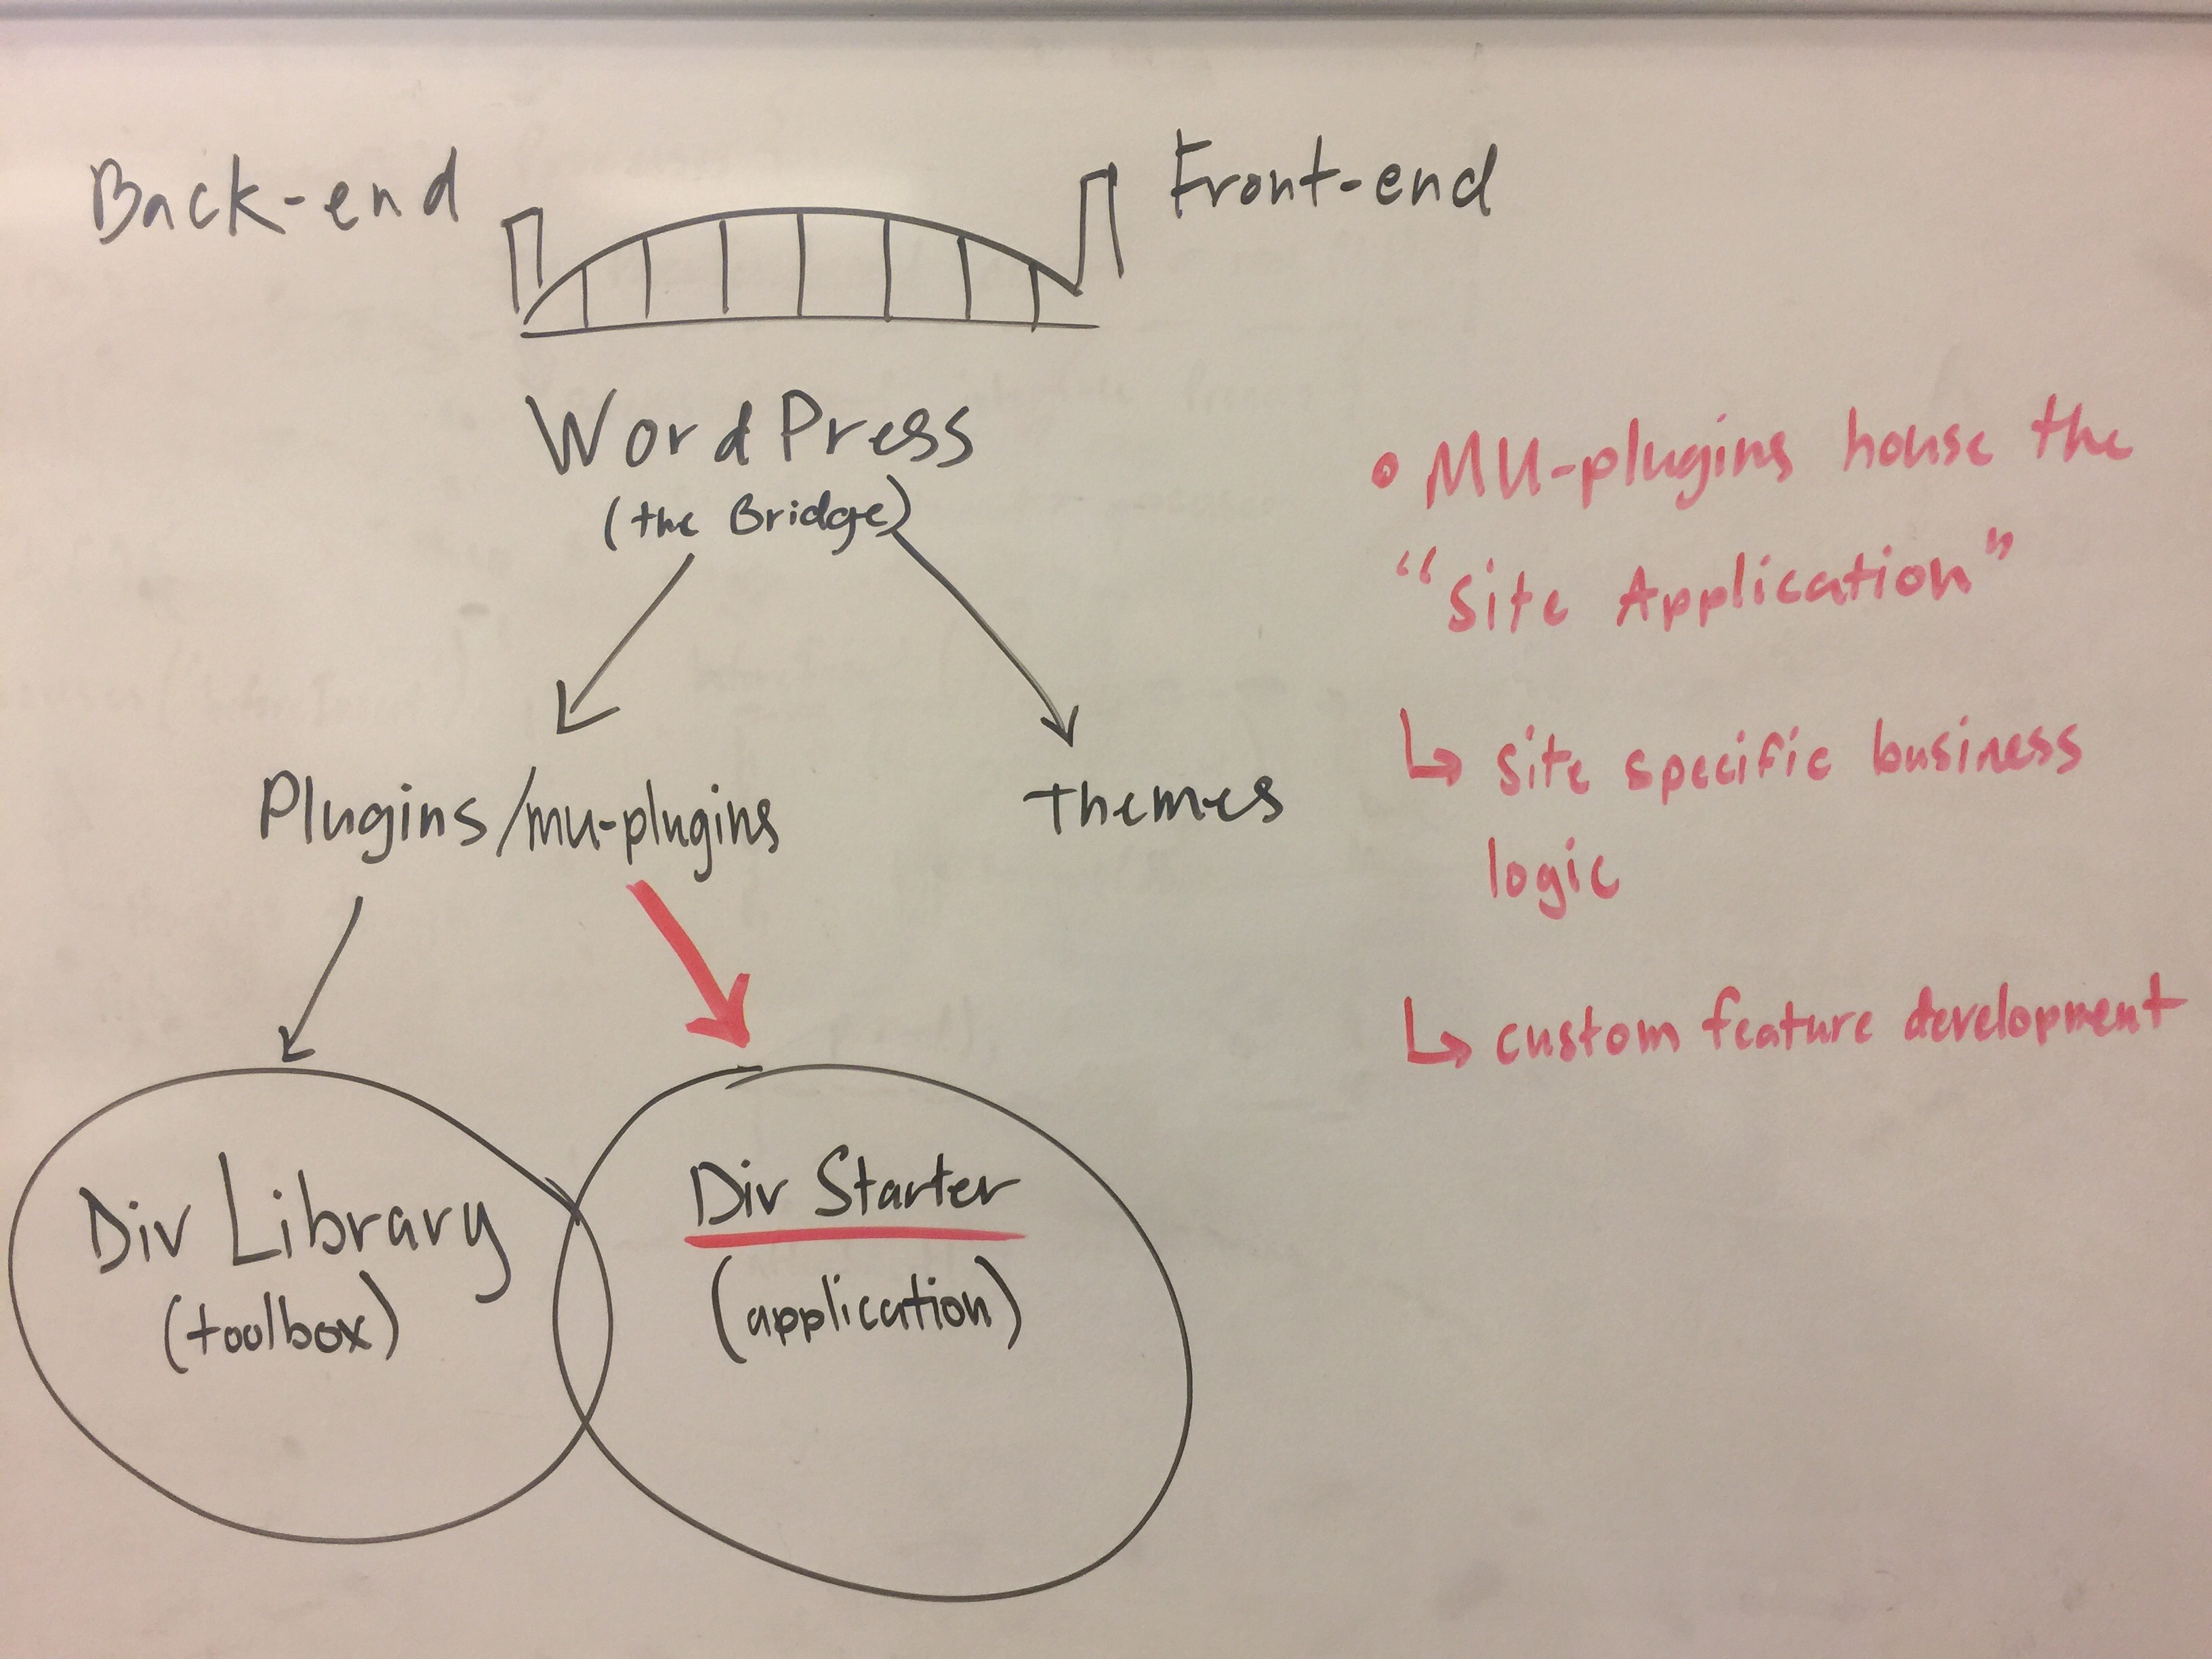 Back-end
Front-end
WordPress
(the Bridge)
Plugins/mu-plugins
Themes
Div Library
(toolbox)
Div Starter
(application)
• MU-plugins house the
"Site Application"
↳ site specific business
logic
↳ custom feature development